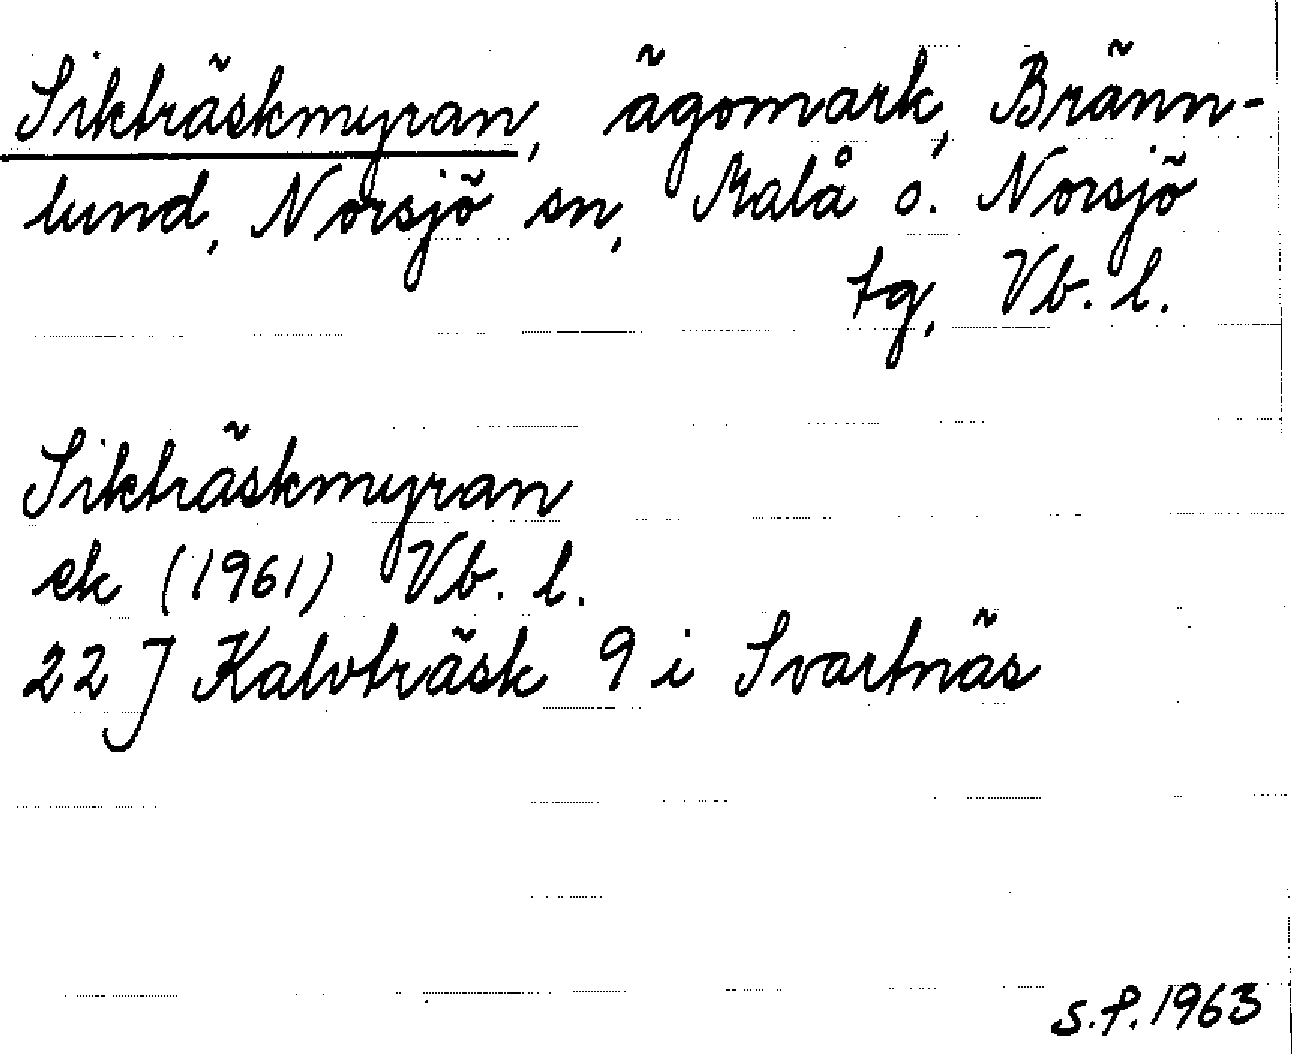 Sikträskmyran, ägomark, Bränn-
lund, Norsjö sn, Malå o. Norsjö
tg, Vb. l.
Sikträskmyran
ek (1961) Vb. l.
22 J Kalvträsk 9 i Svartnäs
S.P. 1963